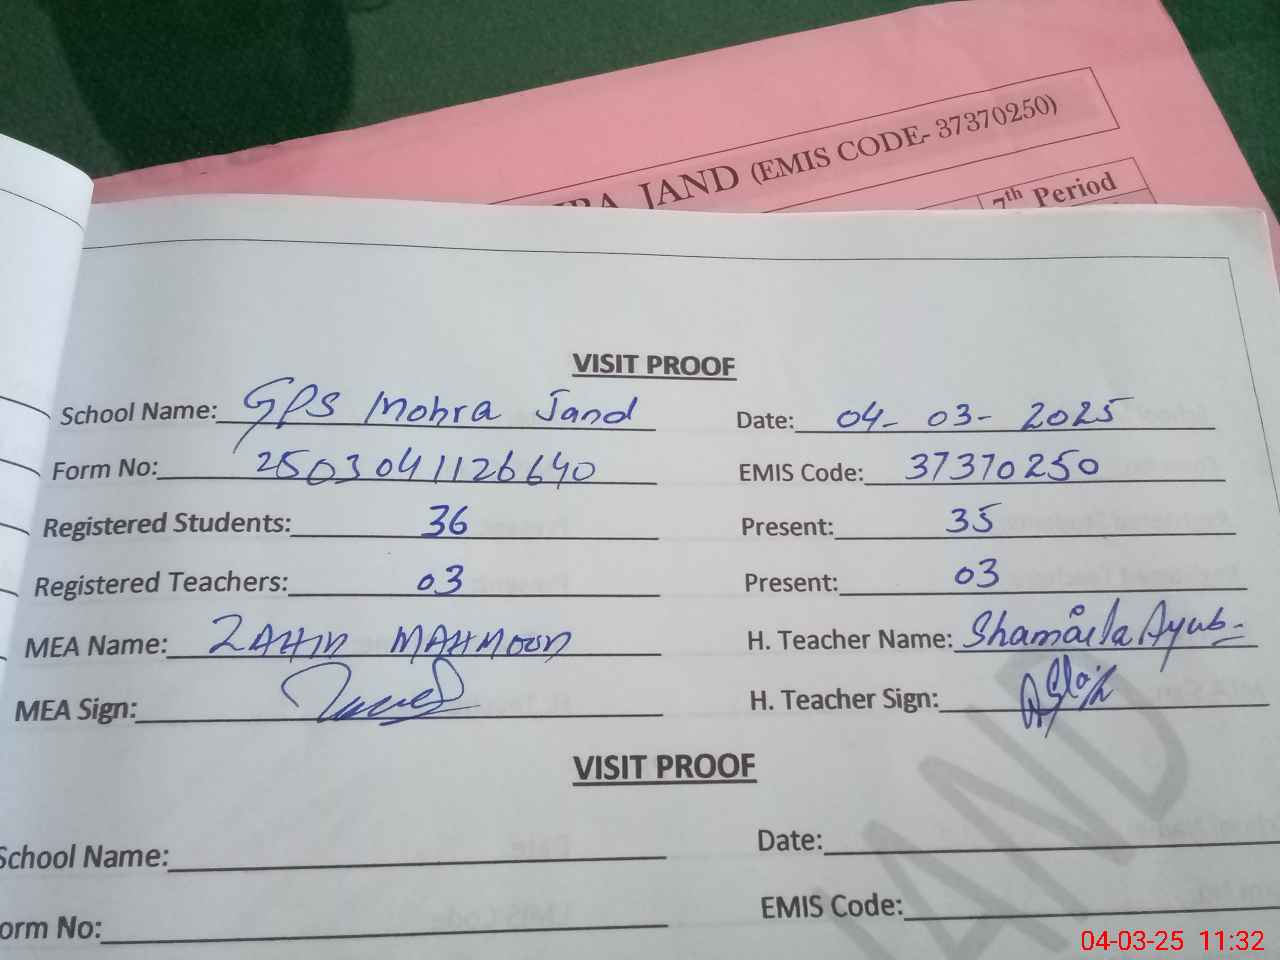 JAND (EMIS CODE- 37370250)
7th Period
VISIT PROOF
School Name: GPS Mohra Jand Date: 04-03-2025
Form No: 2503041126640 EMIS Code: 37370250
Registered Students: 36 Present: 35
Registered Teachers: 03 Present: 03
MEA Name: ZAHID MAHMOOD H. Teacher Name: Shamaila Ayub
MEA Sign: H. Teacher Sign:
VISIT PROOF
School Name: Date:
Form No: EMIS Code:
04-03-25 11:32